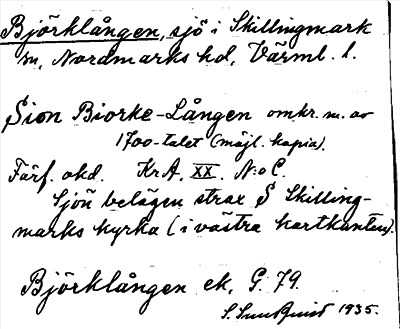 Björklången, sjö i Skillingmark
sn, Nordmarks hd, Värml. l.
Sion Biorke-Lången omkr. m. av
1700-talet (möjl. kopia).
Förf. okd. Kr.A. XX. N:o C.
Sjön belägen strax S Skilling-
marks kyrka (i västra kartkanten).
Björklången ek. G. 79.
S. Sundquist 1935.